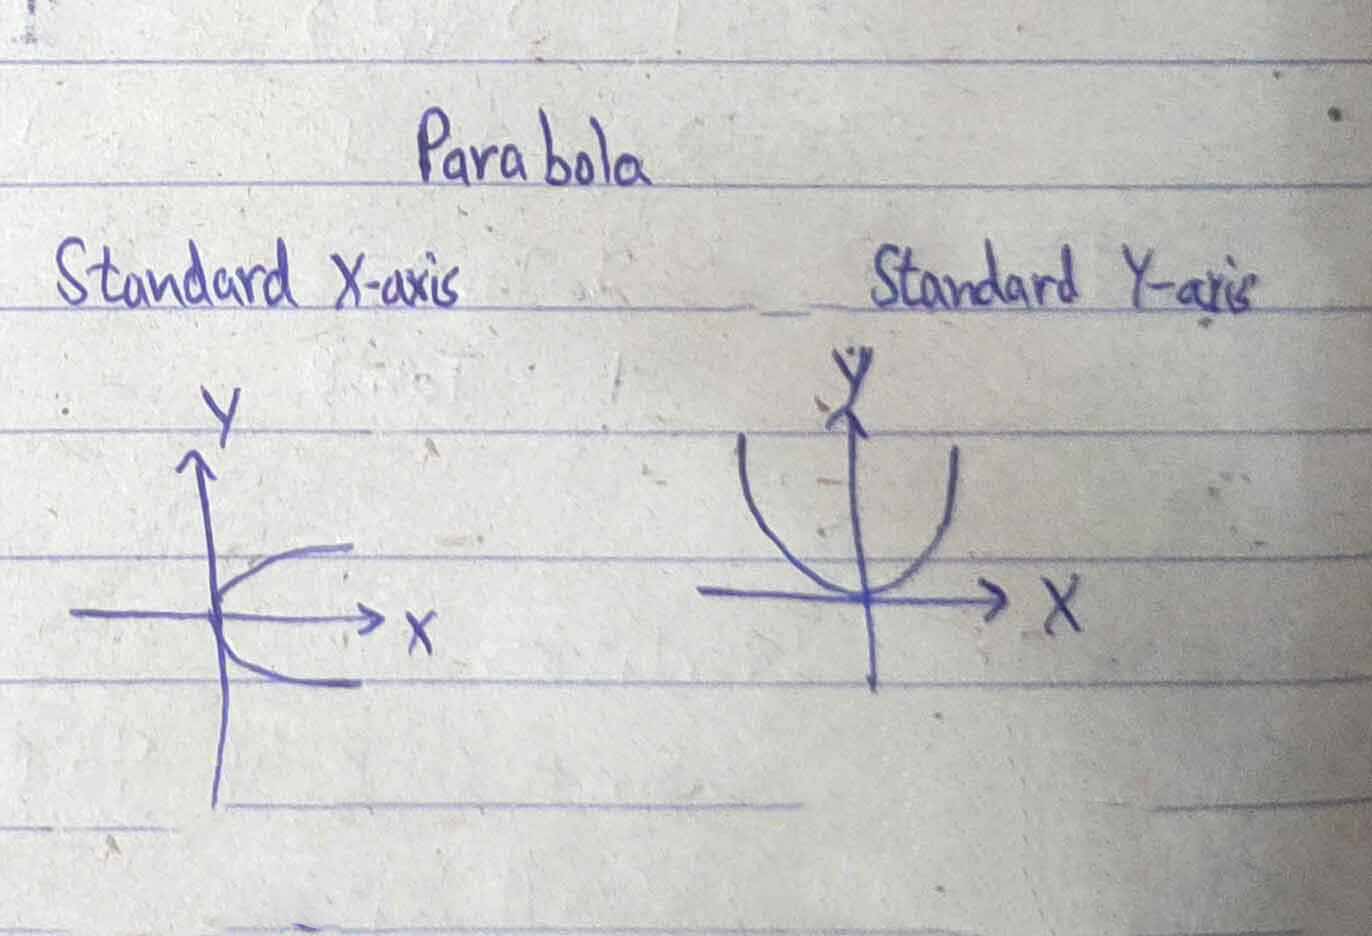 Parabola
Standard X-axis
Standard Y-axis
Y
X
Y
X